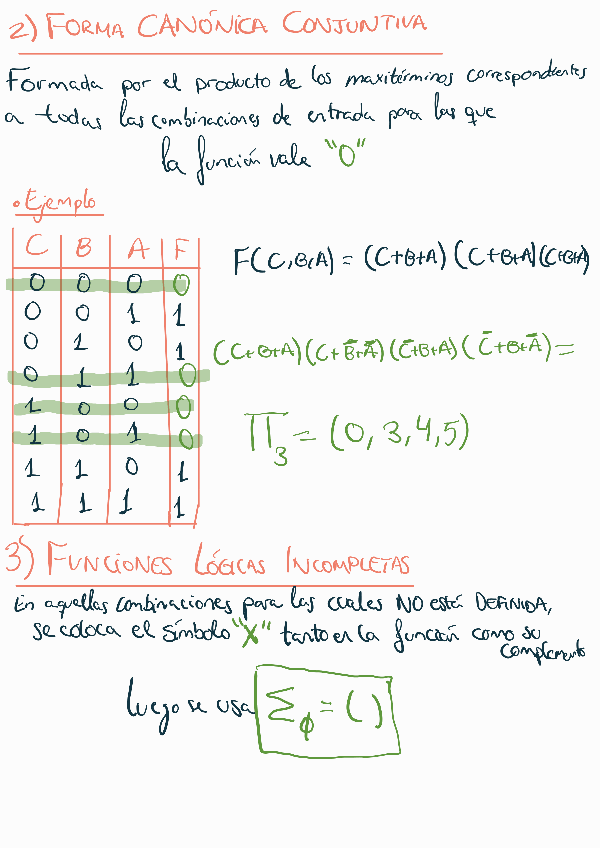 2) FORMA CANÓNICA CONJUNTIVA
Formada por el producto de los maxitérminos correspondientes
a todas las combinaciones de entrada para las que
la función vale "0"
• Ejemplo
C B A F
0 0 0 0
0 0 1 1
0 1 0 1
0 1 1 0
1 0 0 0
1 0 1 0
1 1 0 1
1 1 1 1
F(C,B,A) = (C+B+A) (C+B+A)(C+B+A)
(C+B+A)(C+B̄+Ā)(C̄+B+A)(C̄+B+Ā)=
∏₃ = (0, 3, 4, 5)
3) FUNCIONES LÓGICAS INCOMPLETAS
En aquellas combinaciones para las cuales NO está DEFINIDA,
se coloca el símbolo "X" tanto en la función como su
complemento
luego se usa Σϕ = ( )